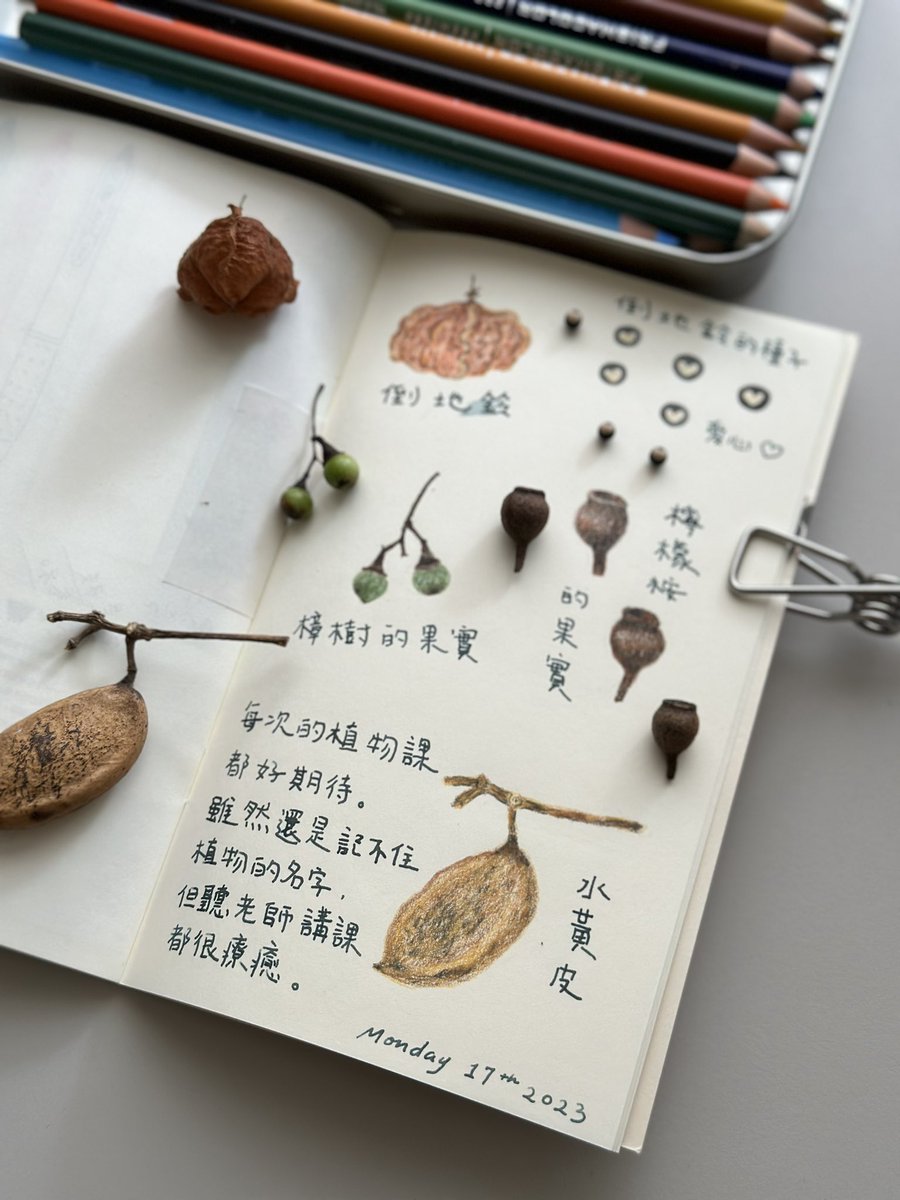 倒地鈴的種子
倒地鈴
愛心♡
檸檬桉
的果實
樟樹的果實
每次的植物課
都好期待。
雖然還是記不住
植物的名字，
但聽老師講課
都很療癒。
水黃皮
Monday 17th 2023